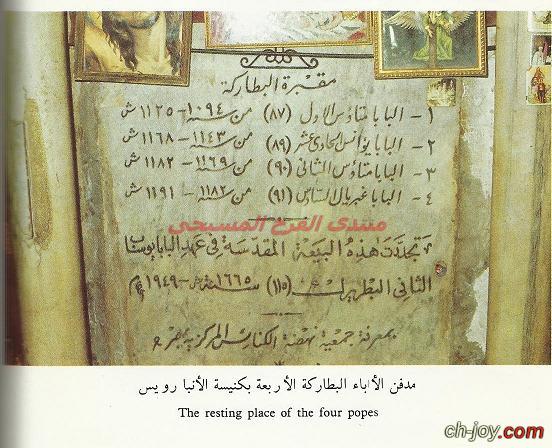 مقبرة البطاركة
١- البابا متاؤس الاول (٨٧) من سنة ١٠٩٤ - ١١٢٥ ش
٢- البابا يوأنس الحادى عشر (٨٩) من سنة ١١٤٣ - ١١٦٨ ش
٣- البابا متاؤس الثانى (٩٠) من سنة ١١٦٩ - ١١٨٢ ش
٤- البابا غبريال السادس (٩١) من سنة ١١٨٢ - ١١٩١ ش
منتدى الفرح المسيحى
تجددت هذه البيعة المقدسة فى عهد البابا يوساب
الثانى البطريرك (١١٥) سنة ١٦٦٥ ش - ١٩٤٩ م
بمعرفة جمعية نهضة الكنائس المركزية بمصر
مدفن الأباء البطاركة الأربعة بكنيسة الأنبا رويس
The resting place of the four popes
ch-joy.com